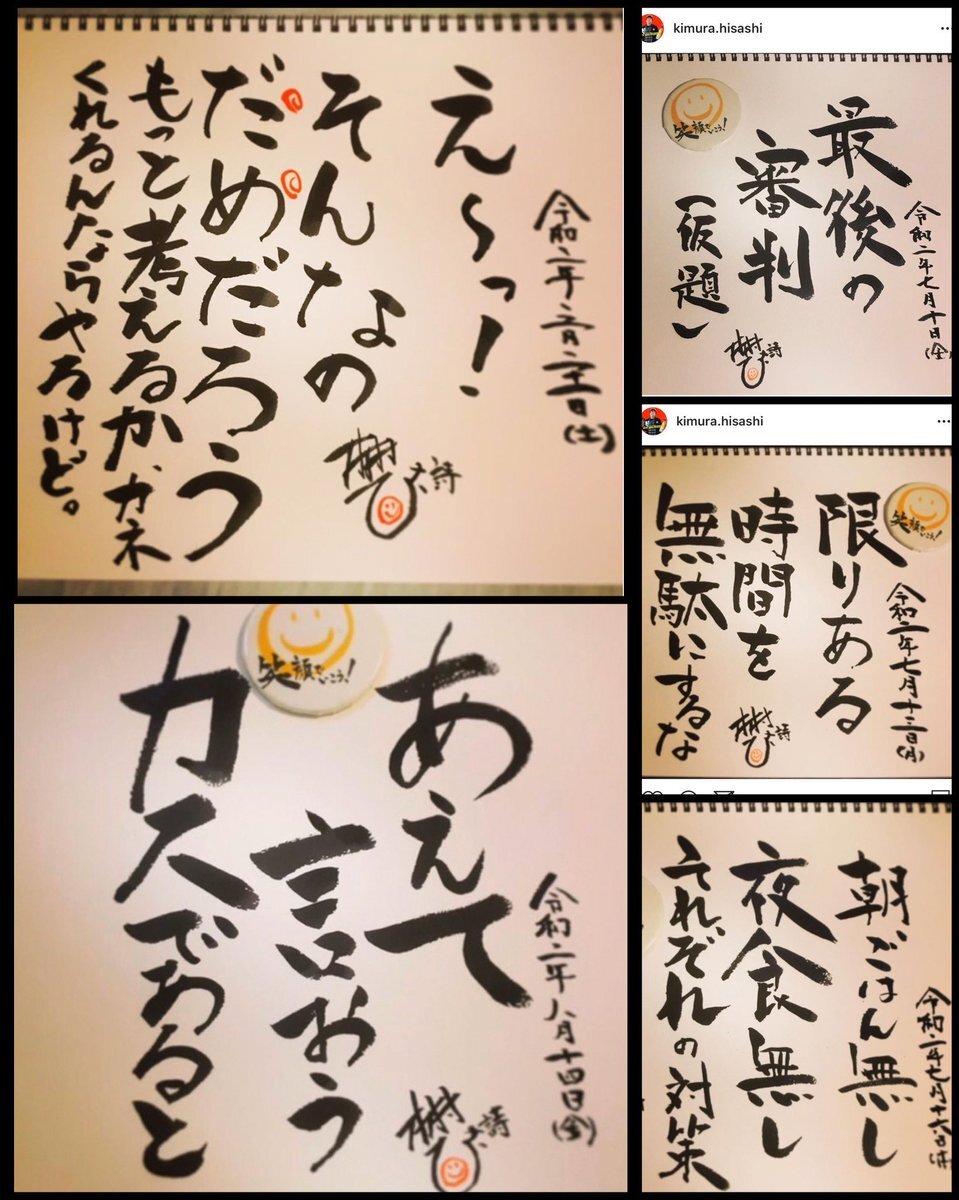 令和二年
(土)
え〜っ!
そんなの
だめだろう
もっと考えるかカネ
くれるんならやろけど。
kimura.hisashi
令和二年七月十日(金)
最後の
審判
(仮題)
笑顔でいこう!
kimura.hisashi
笑顔でいこう!
令和二年七月十三日(月)
限りある
時間を
無駄にするな
詩
令和二年八月十四日(金)
あえて
言おう
カスであると
笑顔でいこう!
詩
令和二年七月十六日(木)
朝ごはん無し
夜食無し
それぞれの対策